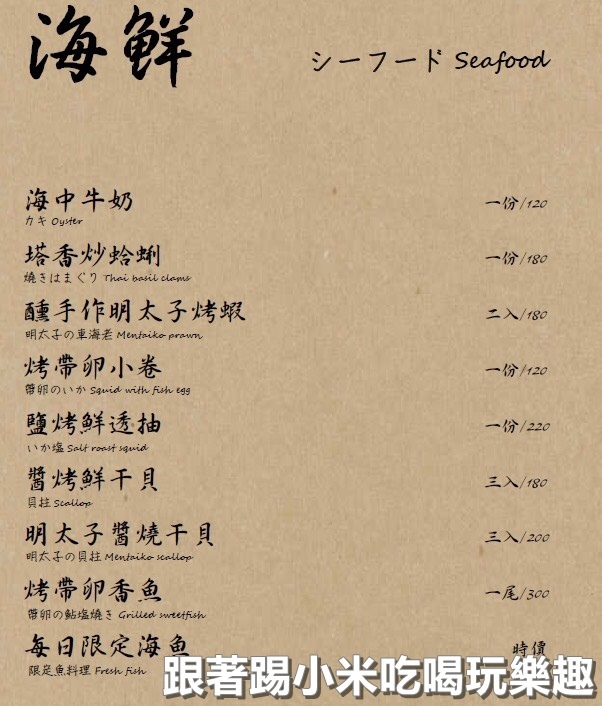 海鮮
シーフード Seafood
海中牛奶 一份/120
カキ Oyster
塔香炒蛤蜊 一份/180
燒きはまぐり Thai basil clams
醺手作明太子烤蝦 二入/180
明太子の車海老 Mentaiko prawn
烤帶卵小卷 一份/120
帶卵のいか Squid with fish egg
鹽烤鮮透抽 一份/220
いか塩 Salt roast squid
醬烤鮮干貝 三入/180
貝柱 Scallop
明太子醬燒干貝 三入/200
明太子の貝柱 Mentaiko scallop
烤帶卵香魚 一尾/300
帶卵の鮎塩燒き Grilled sweetfish
每日限定海魚 時價
限定魚料理 Fresh fish
跟著踢小米吃喝玩樂趣